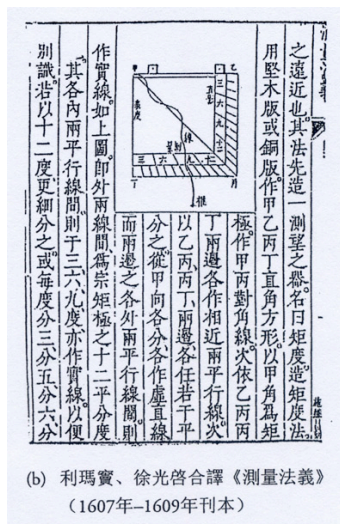 之遠近也。其法先造一測望之器。名曰矩度。造矩度法。
用堅木版或銅版作甲乙丙丁直角方形。以甲角爲矩
極。作甲丙對角線。次依乙丙丙
丁兩邊各作相近兩平行線。次
以乙丙、丙丁、兩邊各任若干平
分之。從甲向各分各作虛直線
而兩邊之各外兩平行線間。則
作實線。如上圖。即外兩線間爲宗矩極之十二平分度
其各內兩平行線間則于三六九度亦作實線。以便
別識。若以十二度更細分之。或每度分三分五分六分
乙
三 六 九 十二
線
三 六 九 十二
丁
丙
權
(b) 利瑪竇、徐光啓合譯《測量法義》
（1607年–1609年刊本）